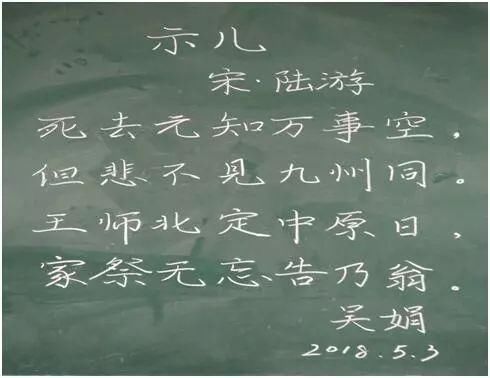 示儿
宋·陆游
死去元知万事空，
但悲不见九州同。
王师北定中原日，
家祭无忘告乃翁。
吴娟
2018.5.3